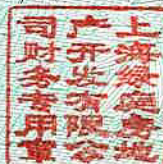 上海房地
产开发有限公
司财务专用章